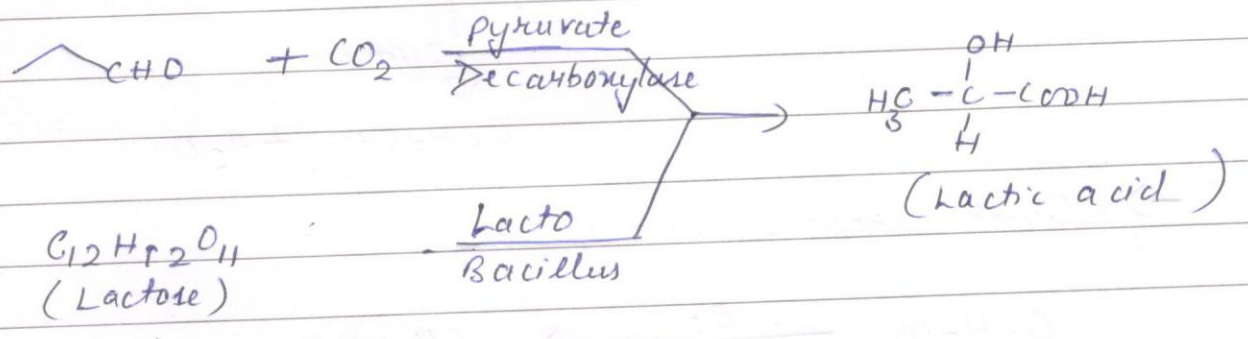 CHO + CO2 Pyruvate
Decarboxylase
OH
H3C - C - COOH
H
(Lactic acid)
C12H22O11 Lacto
(Lactose) Bacillus